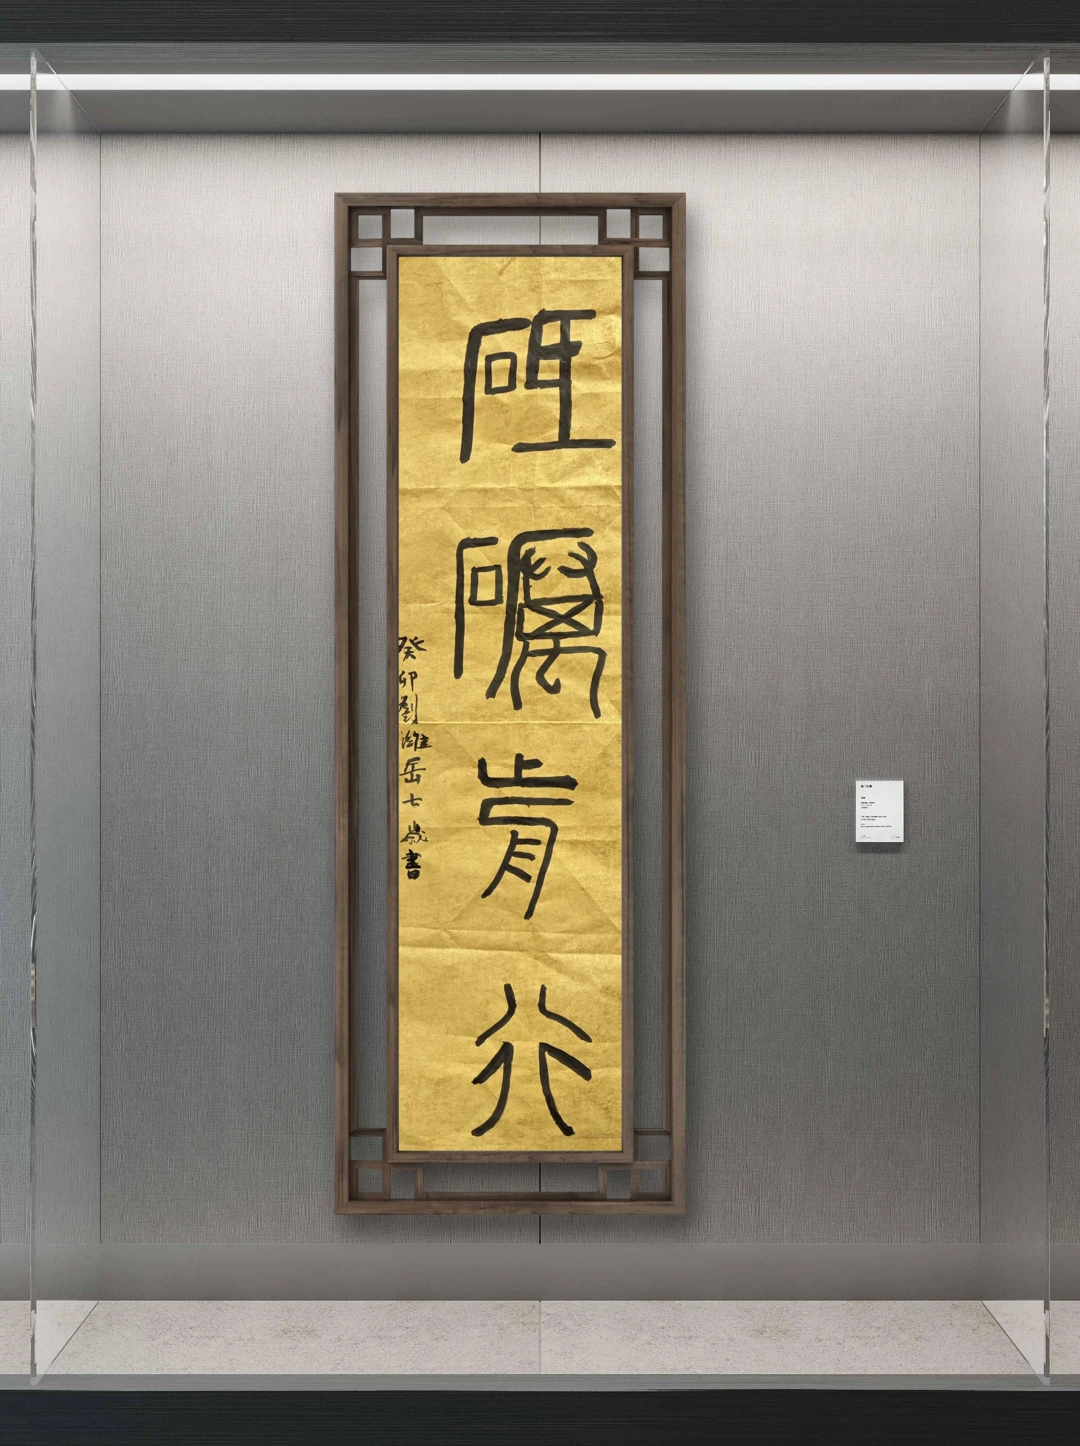 砥礪前行
癸卯劉濰岳七歲書